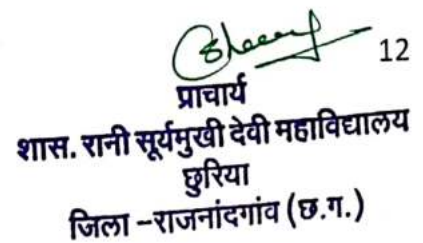 12
प्राचार्य
शास. रानी सूर्यमुखी देवी महाविद्यालय
छुरिया
जिला –राजनांदगांव (छ.ग.)